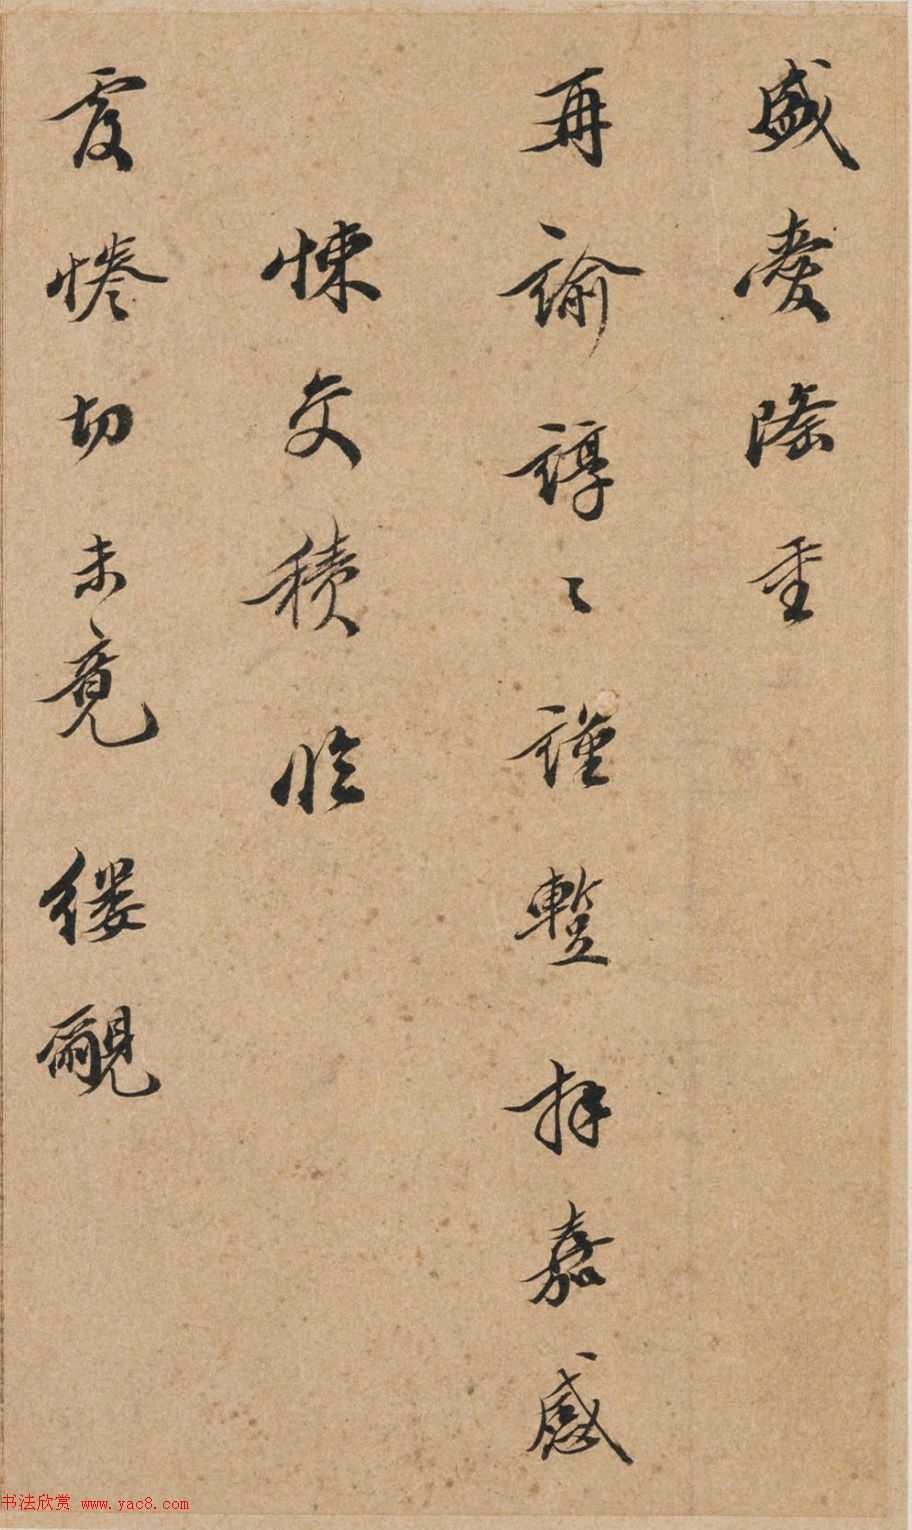 盛愛隆重
再諭諄〻謹蹔拜嘉感
悚交積臨
惓切未竟縷覼
书法欣赏 www.yac8.com